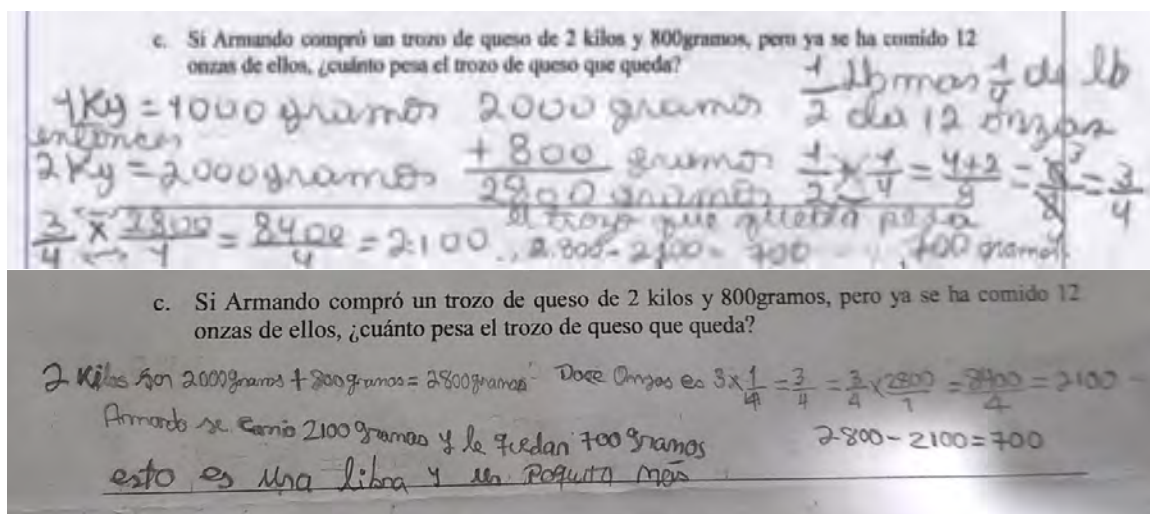 c. Si Armando compró un trozo de queso de 2 kilos y 800gramos, pero ya se ha comido 12
onzas de ellos, ¿cuánto pesa el trozo de queso que queda?
1/2 lb mas 1/4 de lb
1Kg = 1000 gramos 2000 gramos da 12 onzas
entonces
2Kg = 2000gramos + 800 gramos 1/2 x 1/4 = 4+2/8 = 6/8 3 = 3/4
2800 gramos
el trozo que queda pesa
3/4 x 2800/1 = 8400/4 = 2.100 2.800 - 2100 = 700 700 gramos
c. Si Armando compró un trozo de queso de 2 kilos y 800gramos, pero ya se ha comido 12
onzas de ellos, ¿cuánto pesa el trozo de queso que queda?
2 Kilos son 2000gramos + 800gramos = 2800gramos Doce Onzas es 3x1/4 = 3/4 = 3/4 x 2800/1 = 8400/4 = 2100 -
Armando se comio 2100 gramos y le quedan 700 gramos 2.800 - 2100 = 700
esto es una libra y un Poquito más